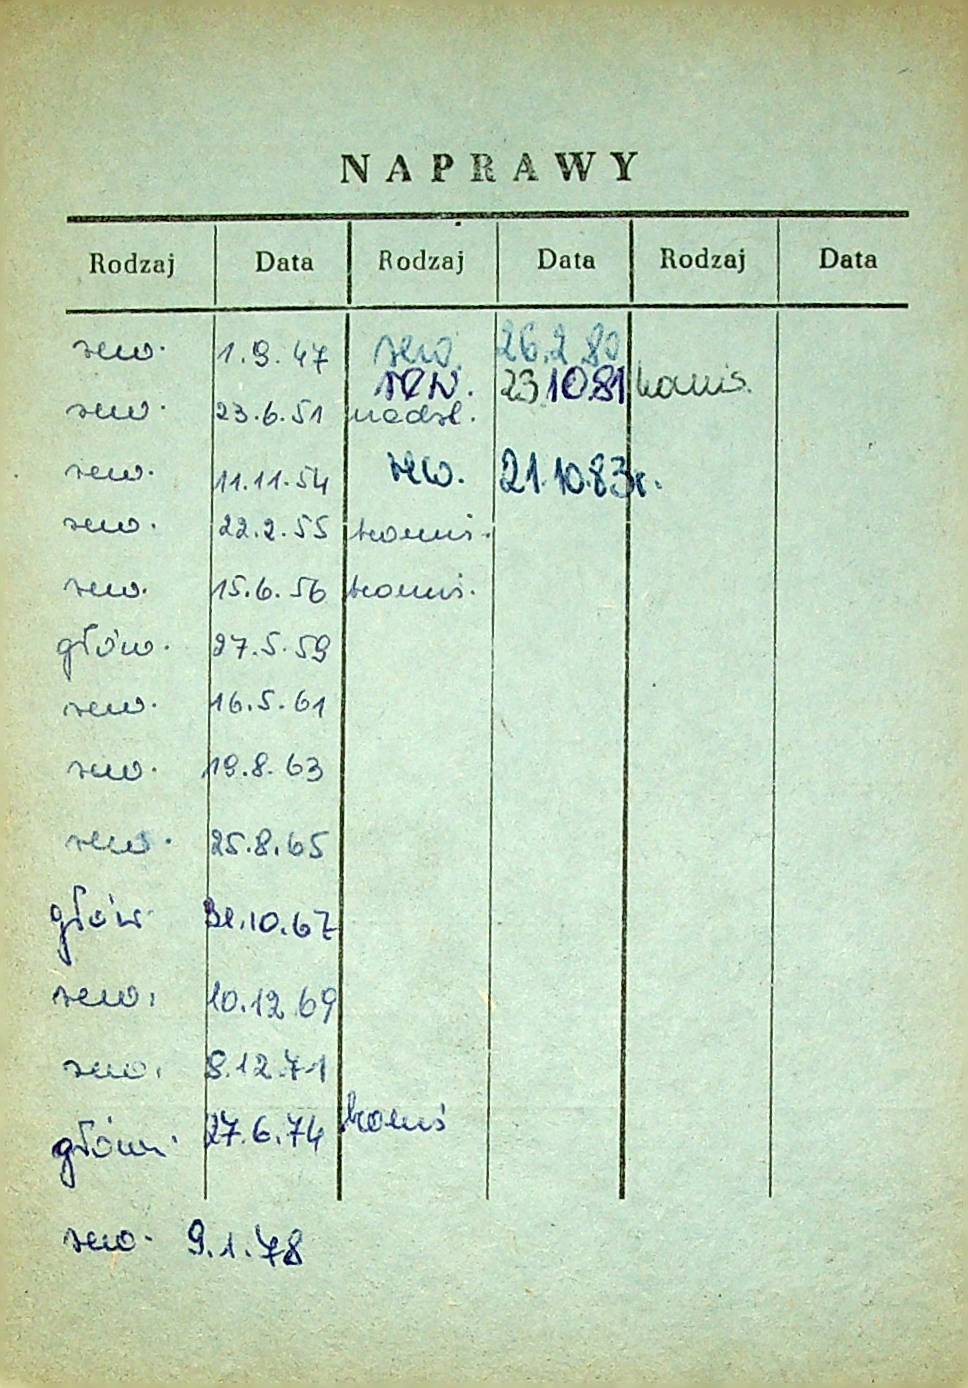 NAPRAWY
Rodzaj Data Rodzaj Data Rodzaj Data
rew. 1.9.47 rew. 26.2.80
rew. 23.10.81 komis.
rew. 23.6.51 nadzl.
rew. 11.11.54 rew. 21.10.83r.
rew. 22.2.55 komis.
rew. 15.6.56 komis.
głów. 27.5.59
rew. 16.5.61
rew. 19.8.63
rew. 25.8.65
głów .10.67
rew. 10.12.69
rew. 8.12.71
głów. 27.6.74 komis
rew. 9.1.78